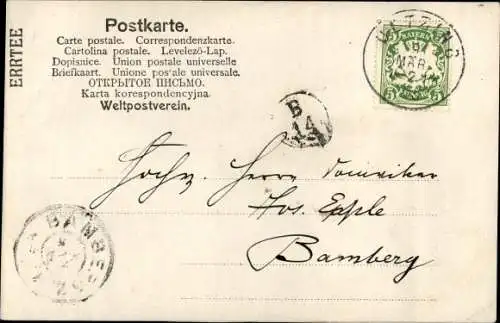 ERRTEE
Postkarte.
Carte postale. Correspondenzkarte.
Cartolina postale. Levelező-Lap.
Dopisnice. Union postale universelle
Briefkaart. Unione postale universale.
ОТКРЫТОЕ ПИСЬМО.
Karta korespondencyjna.
Weltpostverein.
BAYERN
MÄR.
5
5
PFENNIG
B
14
Hochw. Herrn Domvikar
Jos. Epple
Bamberg
BAMBERG